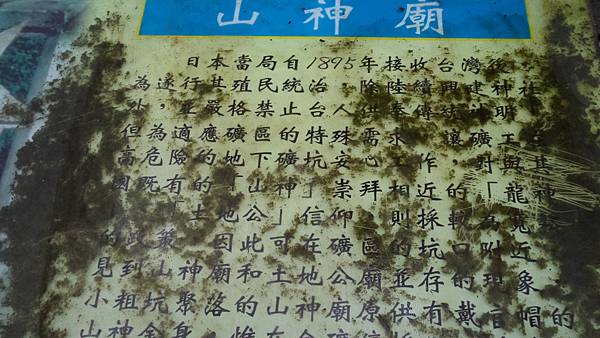 山神廟
日本當局自1895年接收台灣後
為遂行其殖民統治 除陸續興建神社
外,並嚴格禁止台人供奉傳統神明
但為適應礦區的特殊需求,讓礦工
高危險的地下礦坑安心工作,對
既有的「山神」崇拜相近的「
「土地公」信仰則採軟
的 政策 因此可在礦區的坑口附近
見到山神廟和土地公廟並存的現象
小粗坑聚落的山神廟原供有戴帽的
山神金身